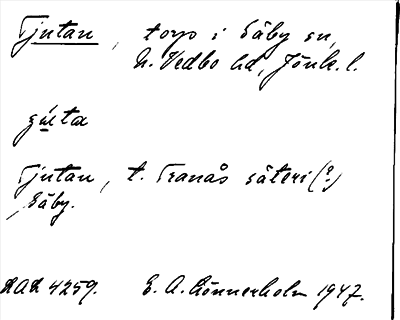 Tjutan, torp i Säby sn,
N. Vedbo hd, Jönk. l.
Tjutan, t. Tranås säteri (?)
Säby.
4259. E. A. Lönnerholm 1947.